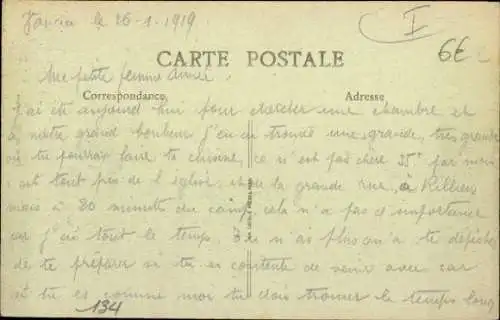 le 26-1-1919
I
6E
CARTE POSTALE
Ma petite femme aimée
Correspondance
Adresse
J'ai été aujourd'hui pour chercher une chambre et
à notre grand bonheur j'en ai trouvé une grande, très grande
où tu pourras faire ta cuisine, ce n'est pas chère 25f par mois
c'est tout près de l'église, dans la grande rue, à Rillieux
mais à 20 minutes du camp, cela n'a pas d'importance
car j'ai tout le temps, tu n'as plus qu'à te dépêcher
de te préparer si tu es contente de venir avec car
si tu es comme moi tu dois trouver le temps long
134